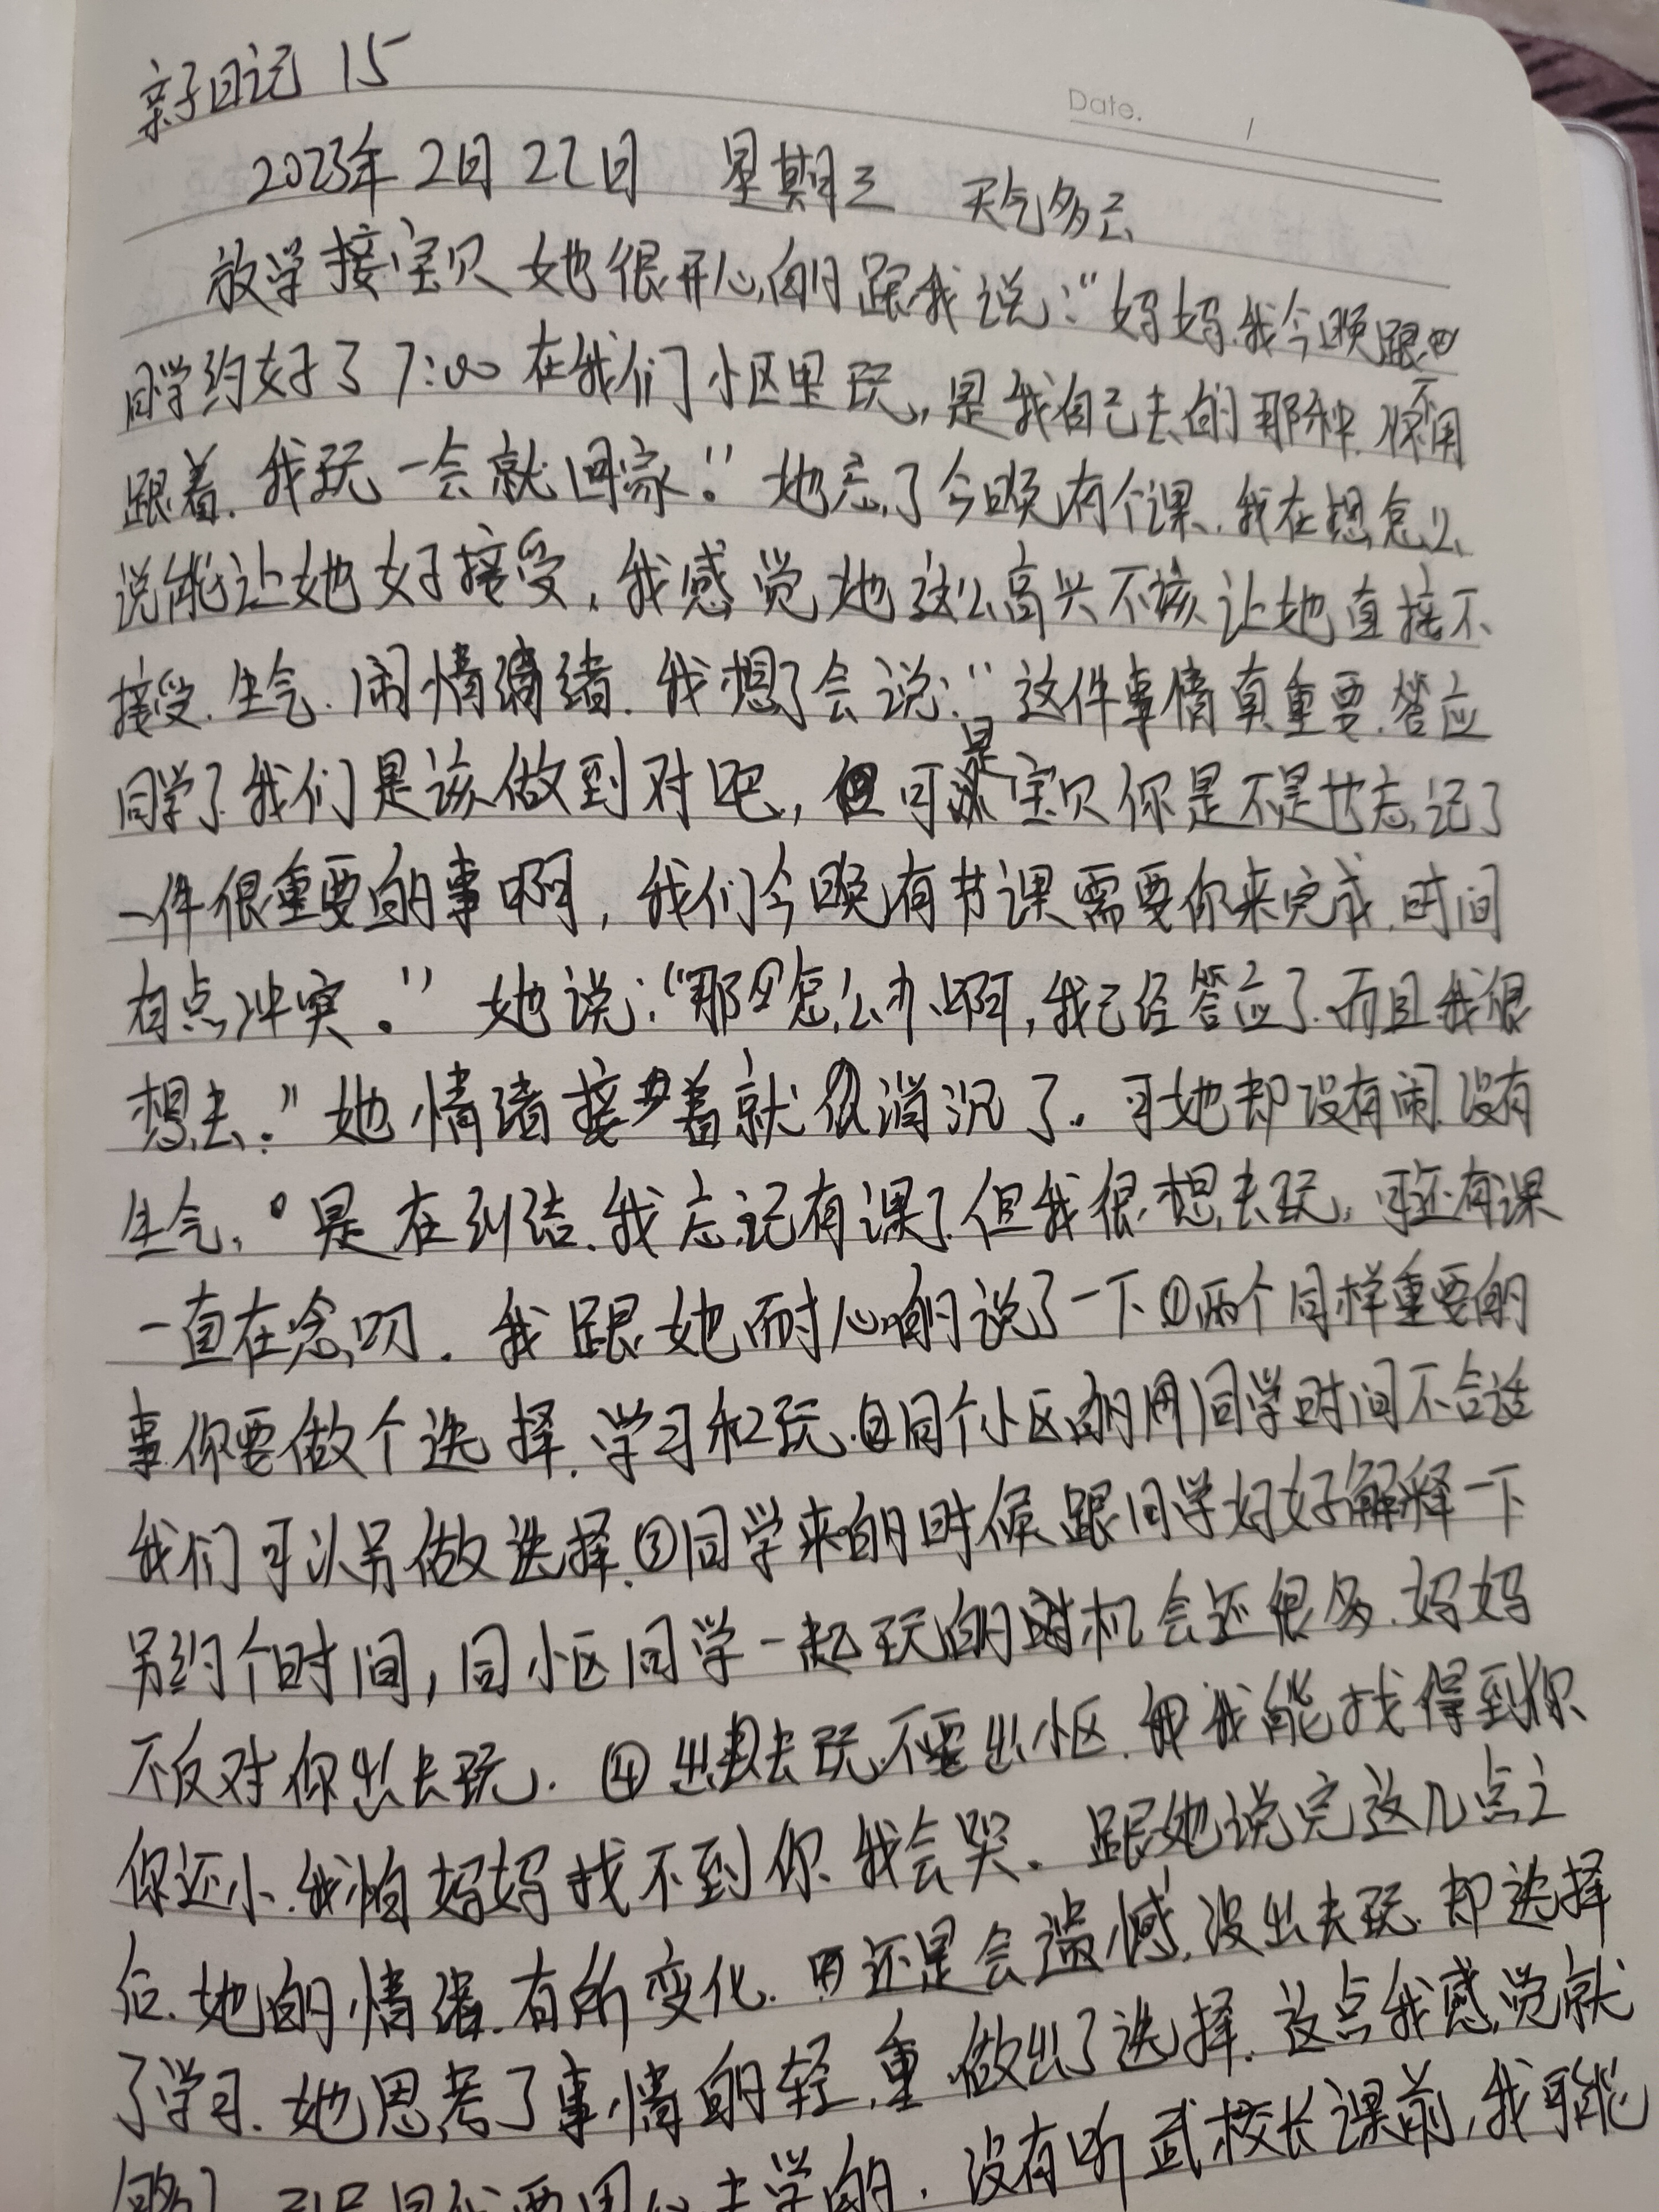 亲子日记 15
Date. /
2023年2月22日 星期三 天气多云
放学接宝贝她很开心的跟我说:“妈妈.我今晚跟
同学约好了7:00在我们小区里玩,是我自己去的那种.你不用
跟着.我玩一会就回家.”她忘了今晚有个课.我在想怎么
说能让她好接受,我感觉她这么高兴不该让她直接不
接受.生气.闹情绪.我想了会说:“这件事情真重要.答应
同学了.我们是该做到对吧,可是宝贝你是不是也忘记了
一件很重要的事啊,我们今晚有节课需要你来完成.时间
有点冲突。”她说:“那怎么办啊,我已经答应了.而且我很
想去.”她情绪接着就很消沉了.可她却没有闹.没有
生气。是在纠结.我忘记有课了.但我很想去玩,可还有课
一直在念叨.我跟她耐心的说了一下①两个同样重要的
事你要做个选择.学习和玩.②同个小区的同学时间不合适
我们可以另做选择.③同学来的时候跟同学好好解释一下
另约个时间,同小区同学一起玩的机会还很多.妈妈
不反对你出去玩.④出去玩不要出小区.我能找得到你
你还小.我怕妈妈找不到你.我会哭.跟她说完这几点之
后.她的情绪.有所变化.还是会遗憾.没出去玩.却选择
了学习.她思考了事情的轻重.做出了选择.这点我感觉就
够了. 学的.没有听武校长课前,我可能